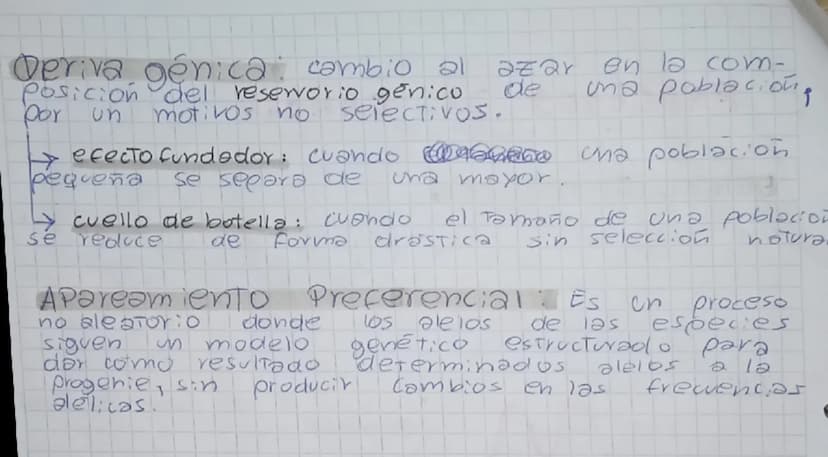 Deriva génica: cambio al azar en la com-
posición del reservorio génico de una población,
por un motivos no selectivos.
→ efecto fundador: cuando una población
pequeña se separa de una mayor.
→ cuello de botella: cuando el tamaño de una població
se reduce de forma drástica sin selección natura
Apareamiento Preferencial: Es un proceso
no aleatorio donde los alelos de las especies
siguen un modelo genético estructurado para
dar como resultado determinados alelos a la
progenie, sin producir cambios en las frecuencias
alélicas.